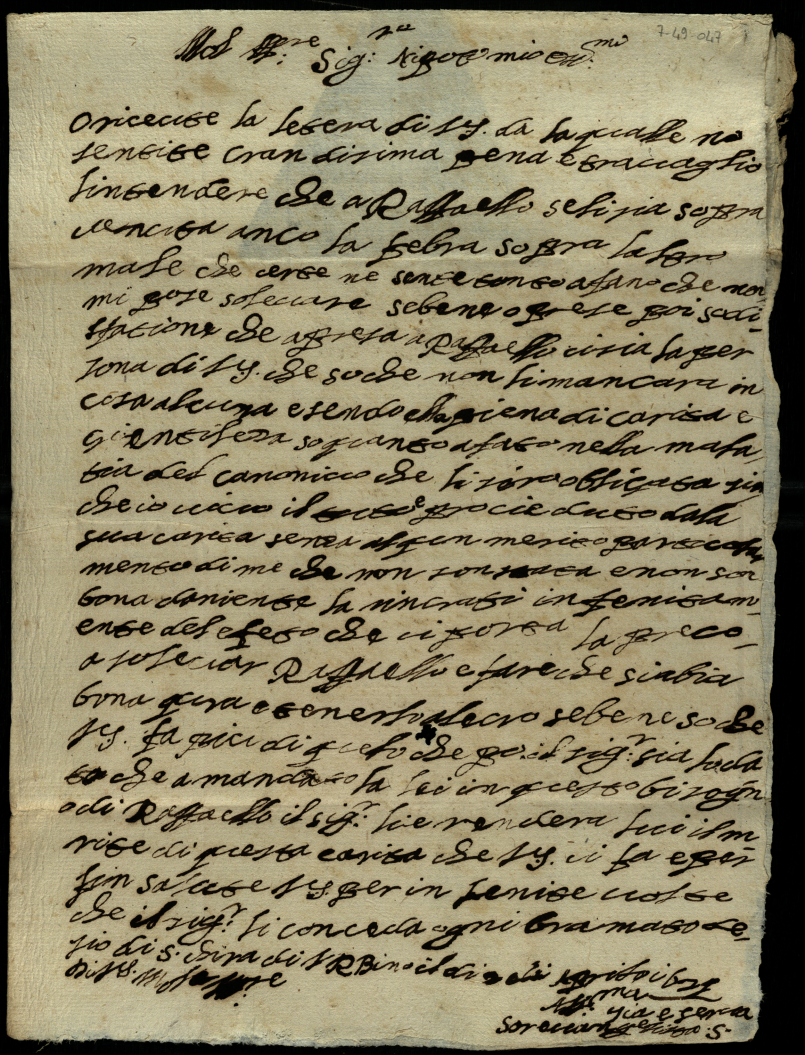 7-49-047
Mol Ill.re Sig.r Nipote mio oss.mo
O riceute la letera di V.S. da la qualle no
sentite crandisima pena e traccaglio
lintendere che a Raffaello seli sia sopra
uencita anco la febra sopra laltro
male che certe ne sente tanto afano che non
mi pose soleuare sebene o prese poi sodi-
sfatione che apresa a Raffaello ci sia la per
sona di V.S. che so che non li mancara in
cosa alcuna esendo ella piena di carita e
gientileza so quanto a fato nella mala
tia del canonico che li siro oblicata sin
che io uiuo il tuto e procieduto dala
sua carita senza alqun merito particolar
mento di me che non son nata e non son
bona da niente la rincratio infenitam
ente del afeto che ci porta la preco
a soleciar Raffaello e fare che si abia
bona qura e tenerlo alecro sebene so che
V.S. fa piu di quelo che po il sig.r sia loda
to che a mandato la lei in questo bisogn
o di Raffaello il sig.r lie rendera lui il m
rite di questa carita che V.S. ci fa e per
fin salute V.S. per in fenite uolte
che il sig.r li conceda ogni bramato de-
sio di S. Chira di VRBino il di 2 di Aprile
Di V.S. Molt Ill.re
Aff.ma Zia e serua
Suor